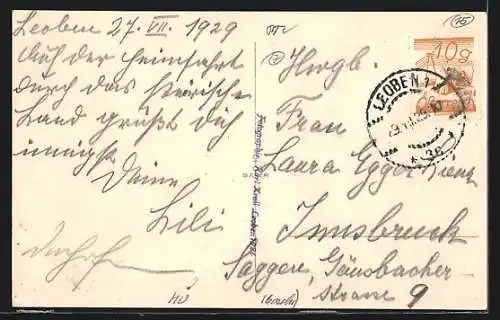 Leoben 27. VII. 1929
Auf der Heimfahrt
durch das steirische
Land grüßt Dich
innigst
Deine
Lili
Hwgb.
Frau
Laura Egger-Lienz
Innsbruck
Saggen, Gänsbacher-
strasse 9
10g
LEOBEN 1
* 3a *
Photographie Karl Krall Leoben
15